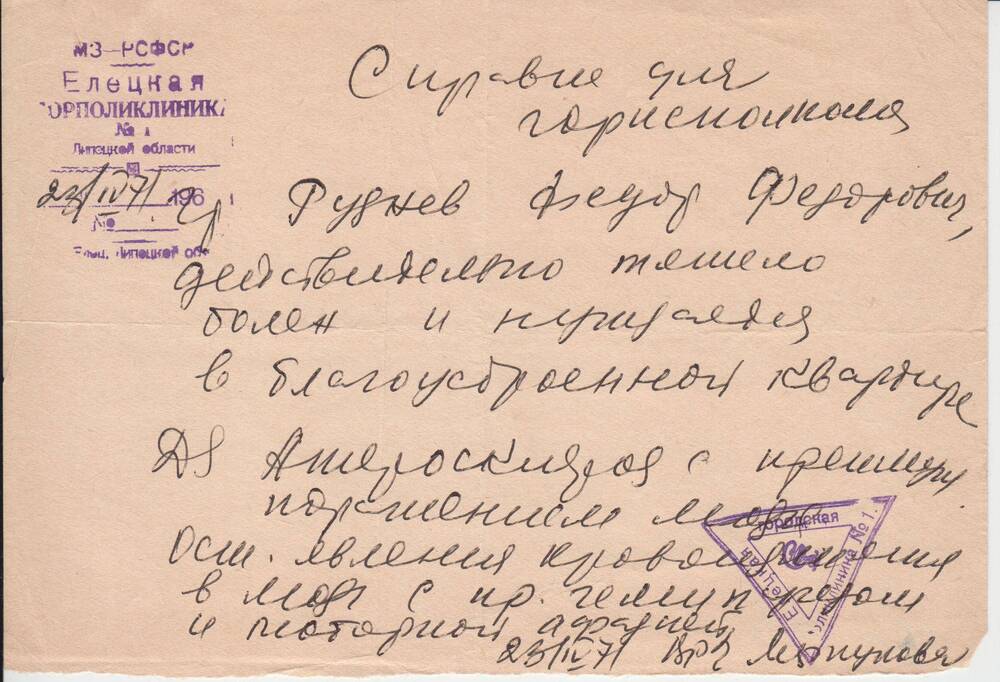 МЗ—РСФСР
Елецкая
ГОРПОЛИКЛИНИКА
№ 1
Липецкой области
23/IV 71 196
№
Елец, Липецкой обл
Справка для
горисполкома
гр Руднев Федор Федорович,
действительно тяжело
болен и нуждается
в благоустроенной квартире
DS Атеросклероз с преимущ
поражением мозга
Ост. явления кровоизлияния
в мозг с пр. гемипарезом
и моторной афазией
23/IV 71 Врч
городская
Елецкая
поликлиника № 1.